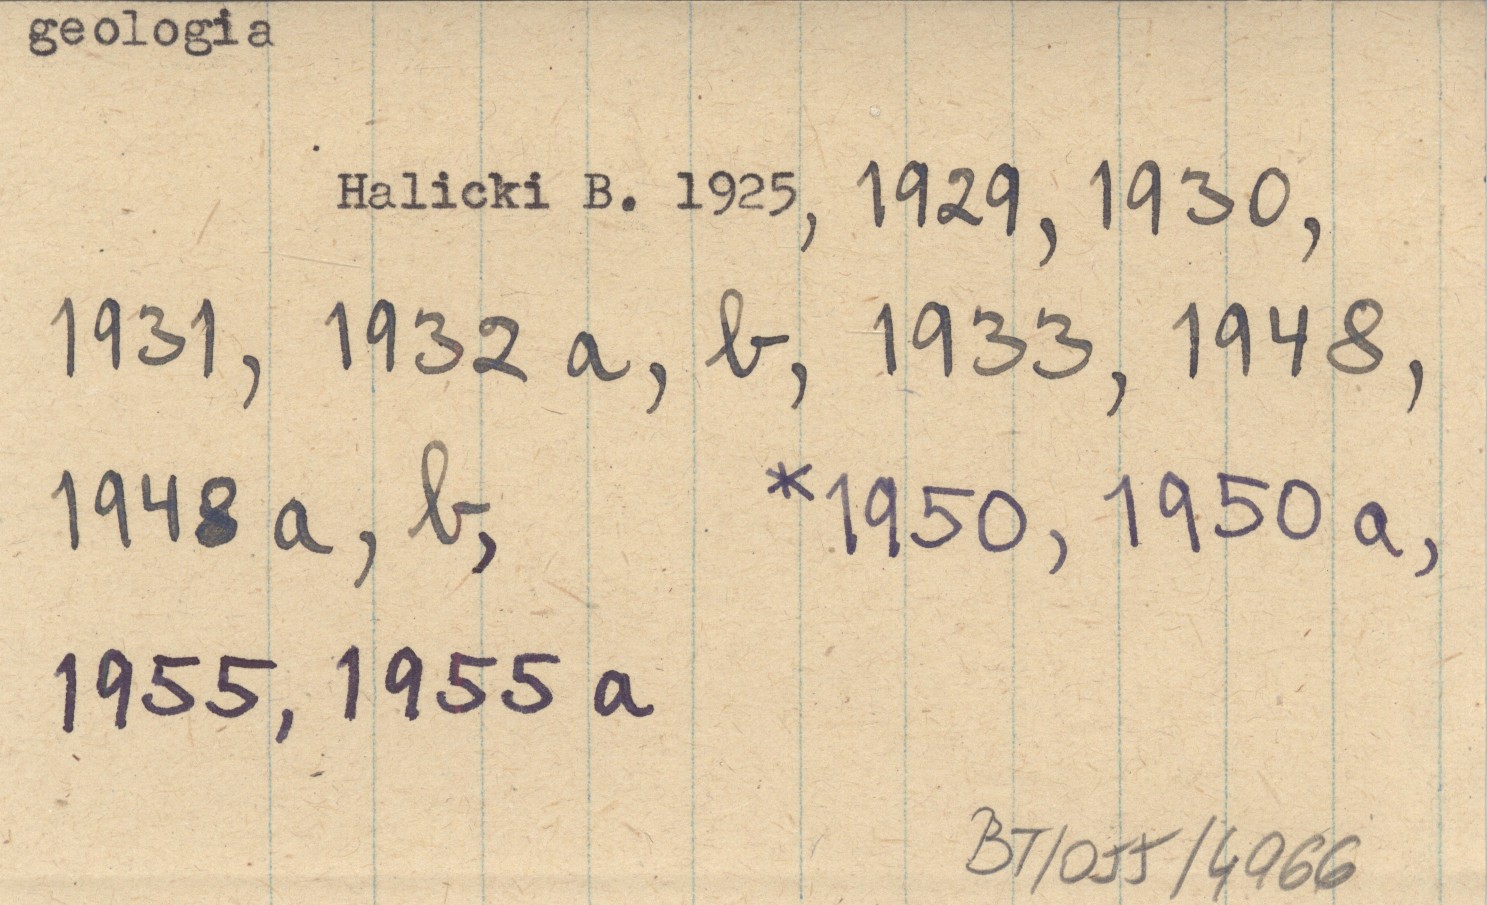 geologia
Halicki B. 1925, 1929, 1930,
1931, 1932 a, b, 1933, 1948,
1948 a, b, *1950, 1950 a,
1955, 1955 a
BT/055/4966